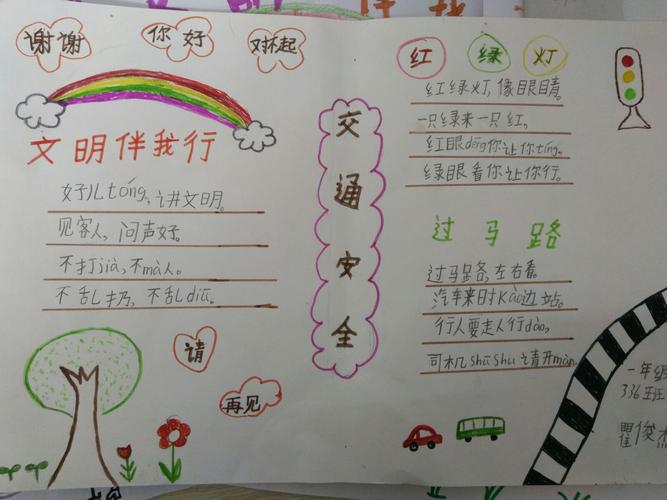 谢谢
你好
对不起
文明伴我行
好儿tóng,讲文明。
见客人,问声好。
不打jià,不mà人。
不乱扔,不乱diū。
请
再见
交通安全
红绿灯
红绿灯,像眼睛。
一只绿来一只红,
红眼dēng你让你tíng,
绿眼看你让你行。
过马路
过马路,左右看。
汽车来时kào边站。
行人要走人行dào,
司机shūshu请开màn
一年级
336班
瞿俊杰